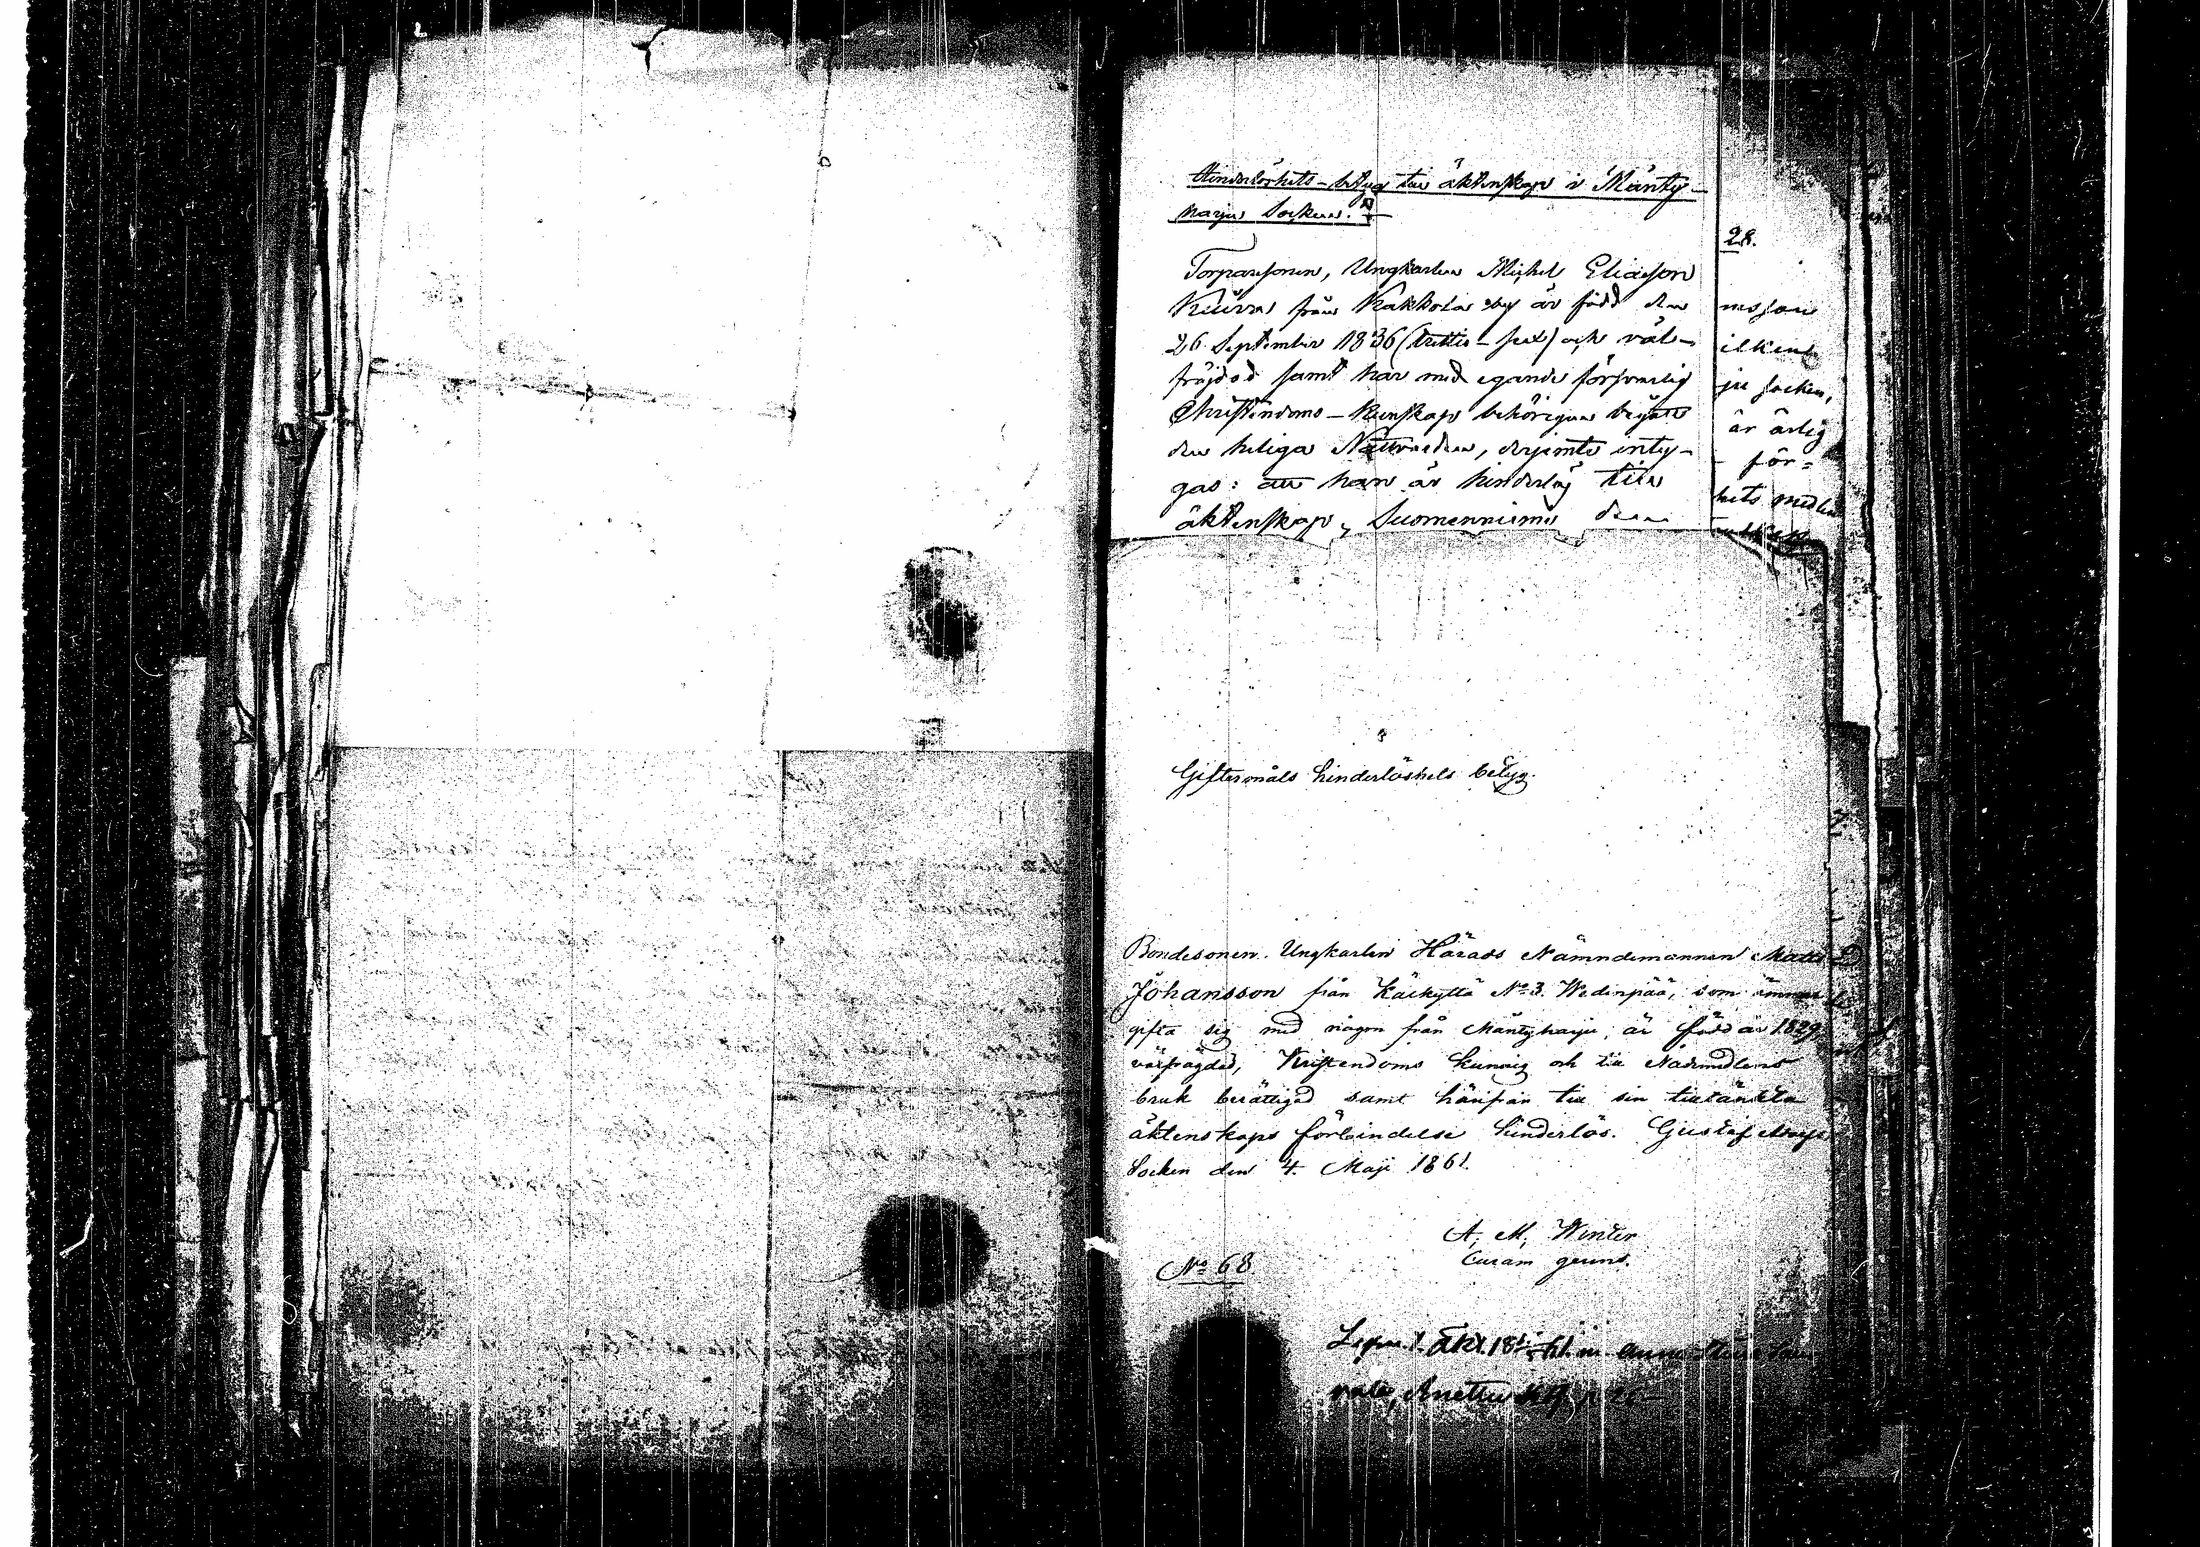 Hinderlöshets-betyg till äktenskap i Mänty-
harju Socken.
Torparesonen, Ungkarlen Michel Eliasson
från Kakkola by är född den
26 September 1836 (trettio-sex) och väl-
fräjdad samt har med egande försvarlig
Christendoms-kunskap behörigen begått
den heliga Nattvarden, derjemte inty-
gas: att han är hinderlös till
äktenskap, Suomenniemi den
28.
ilken
ju socken,
är ärlig
för=
hets medlen
Giftermåls hinderlöshets betyg.
Bondesonen Ungkarlen Härads Nämndemannen Matts
Johansson från Käckyttä No 3. Wedenpää, som ämnar
gifta sig med någon från Mäntyharju, är född år 1829,
välfrägdad, Kristendoms kunnig och till Nådemedlens
bruk berättigad samt härifrån till sin tilltänkta
äktenskaps förbindelse hinderlös. Gustaf Adolfs
Socken den 4. Maji 1861.
A. M. Winter
Curam gerens.
No 68